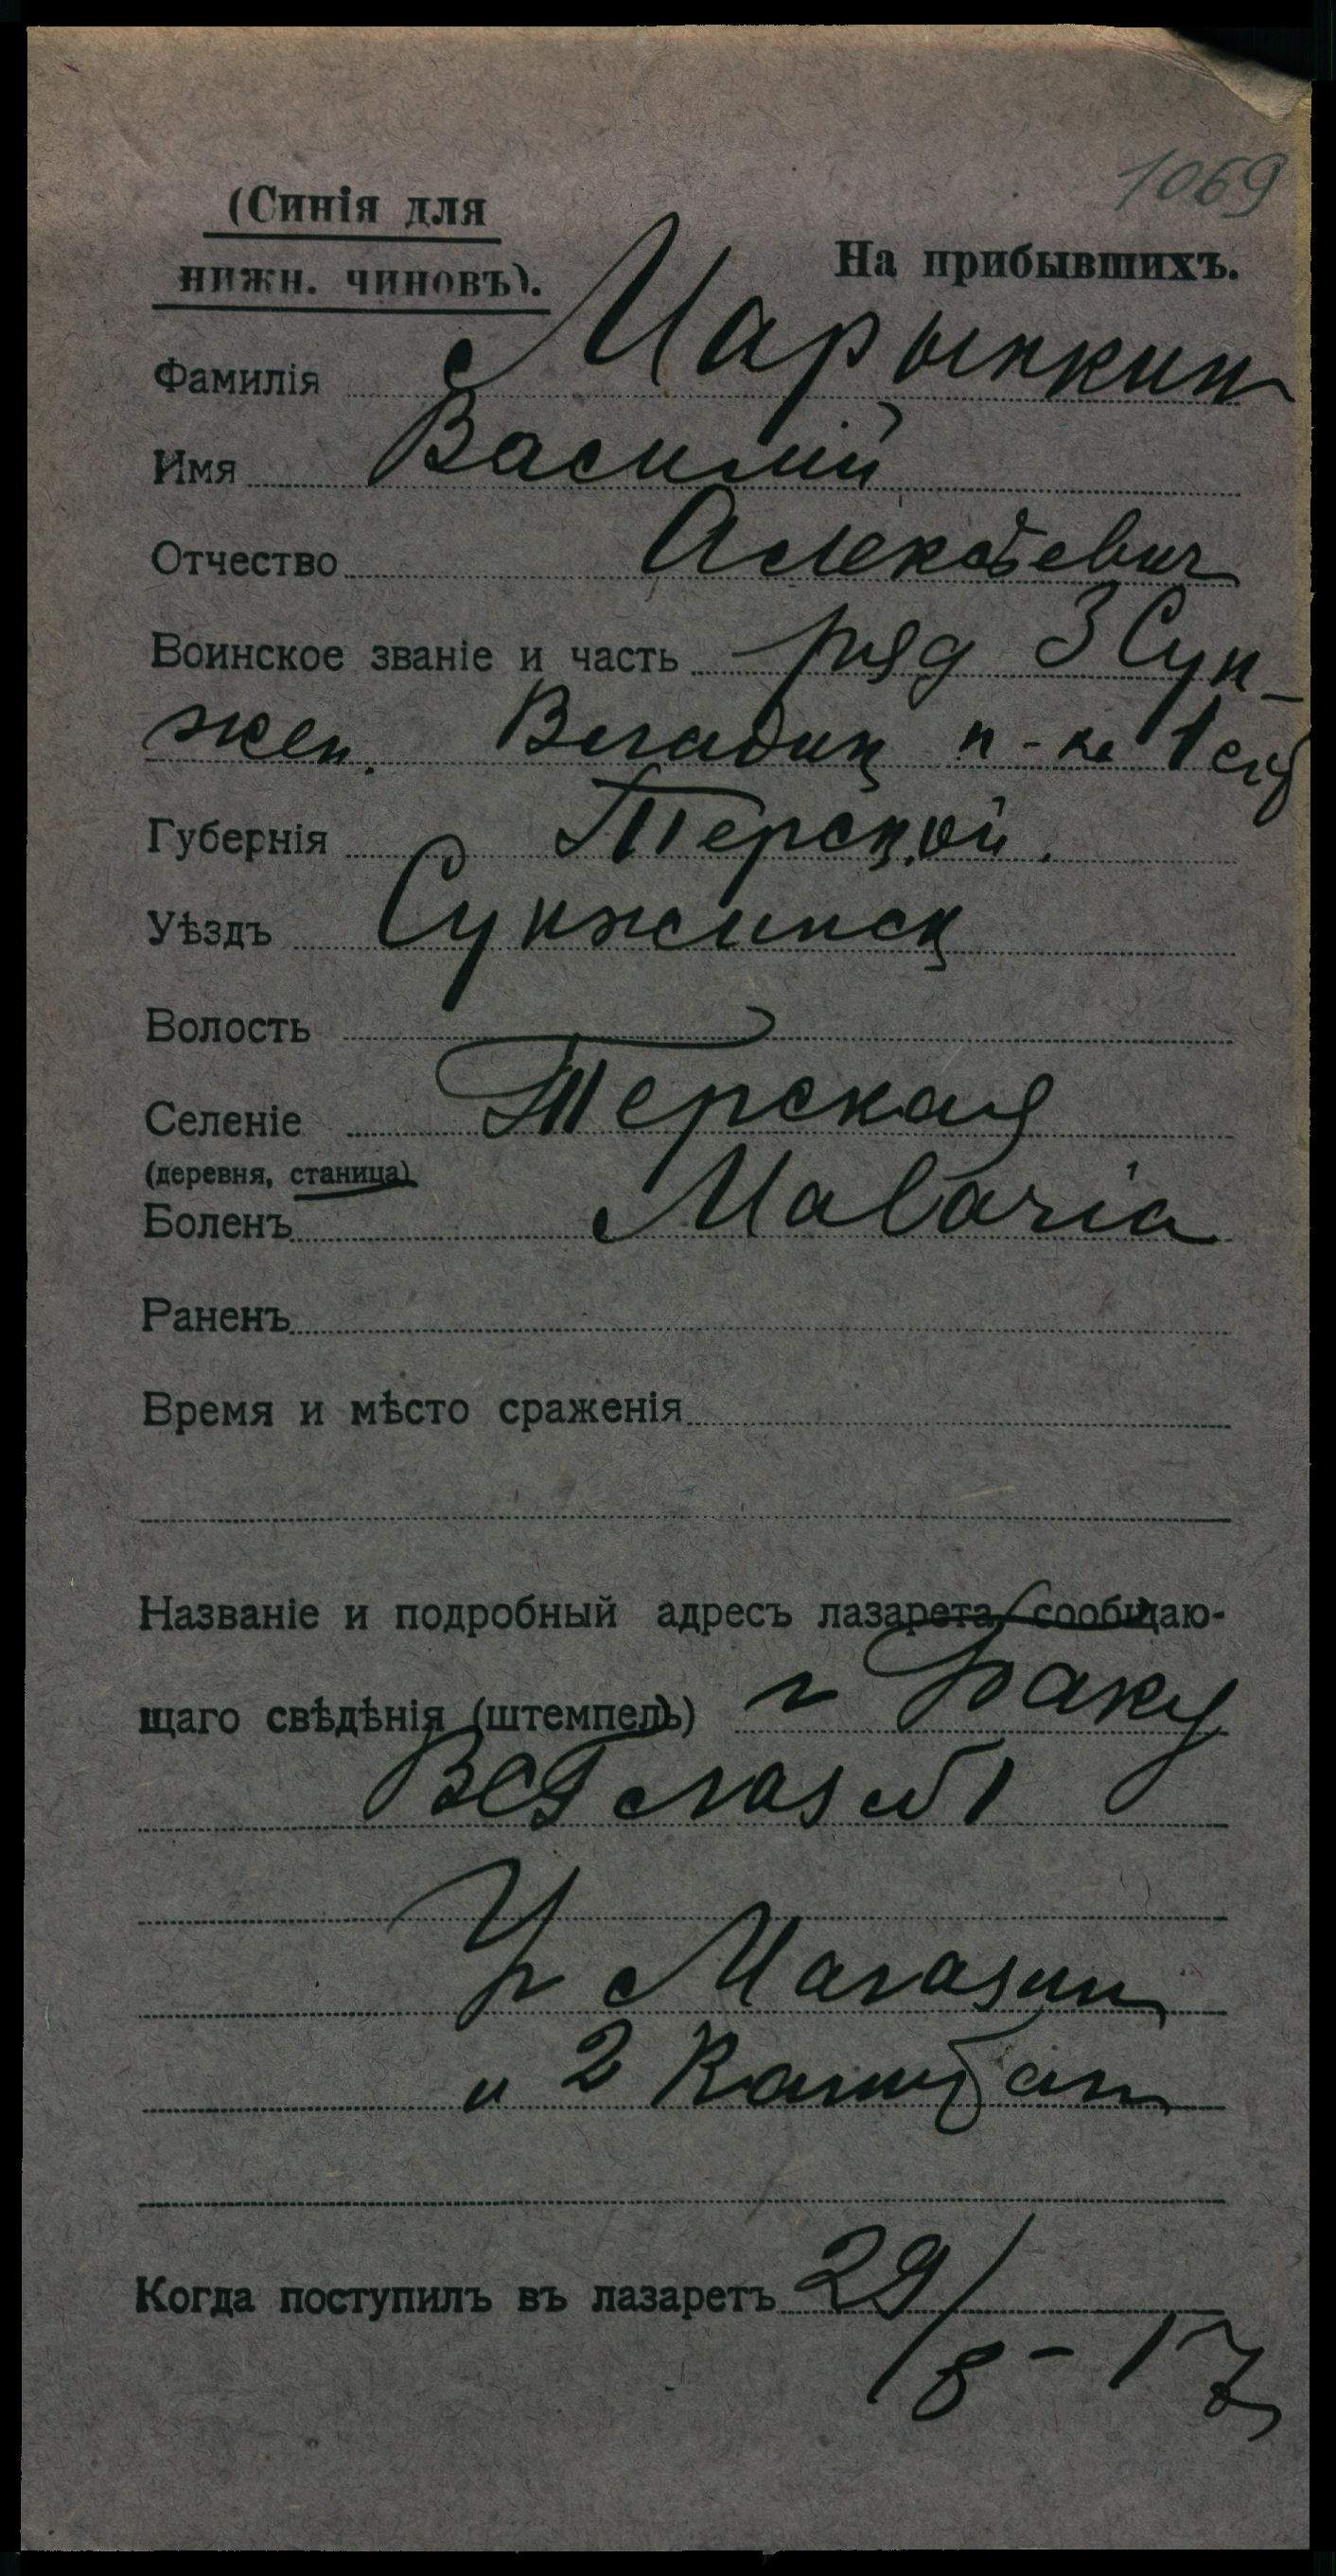 1069
(Синія для
нижн. чиновъ).
На прибывшихъ.
Фамилія Марынкин
Имя Василій
Отчество Алексѣевич
Воинское званіе и часть ряд 3 Сун-
жен. Владик п-ка 1 
Губернія Терской.
Уѣздъ Сунженск
Волость
Селеніе Терская
(деревня, станица)
Боленъ Malaria
Раненъ
Время и мѣсто сраженія
Названіе и подробный адресъ лазарета, сообщаю-
щаго свѣдѣнія (штемпель) г Баку
ВСГ лаз №1
Уг Магазин
и 2
Когда поступилъ въ лазаретъ 29/
8-17